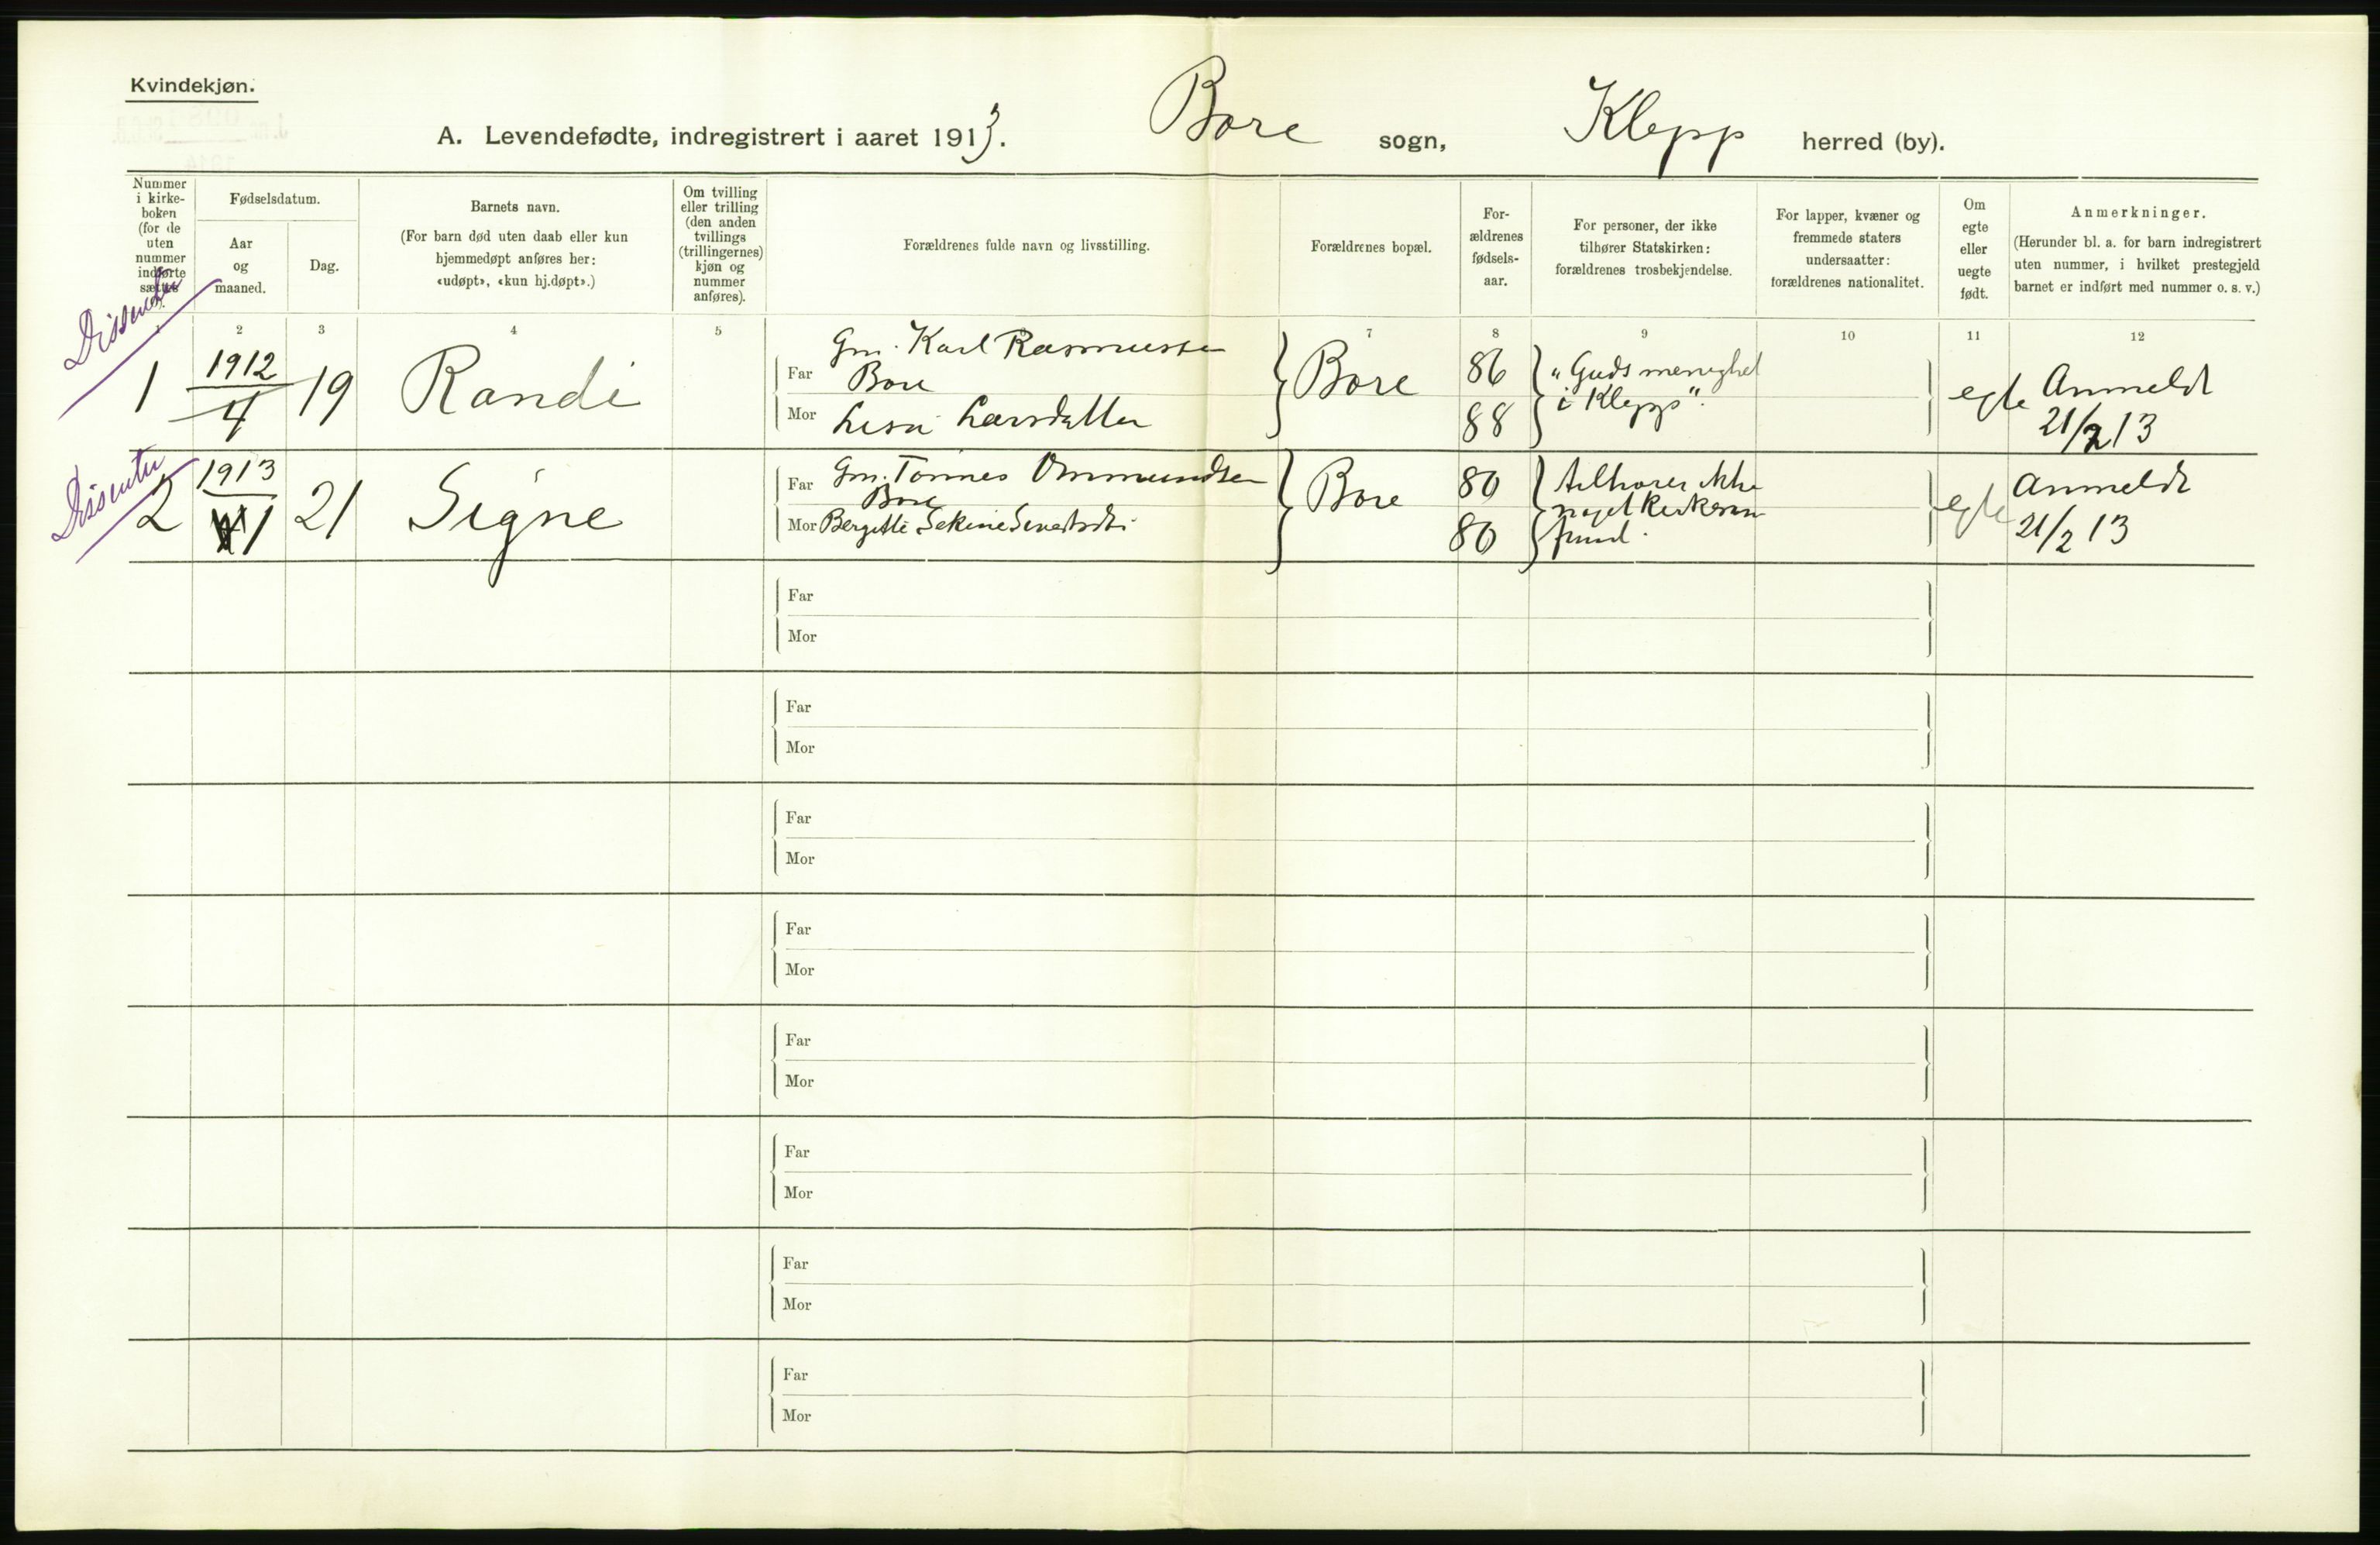 Kvindekjøn.
A. Levendefødte, indregistrert i aaret 1913. Bore sogn, Klepp herred (by).
Nummer i kirke-boken (for de uten nummer indførte sættes 0).
Fødselsdatum.
Aar og maaned.
Dag.
Barnets navn.
(For barn død uten daab eller kun
hjemmedøpt anføres her:
«udøpt», «kun hj.døpt».)
Om tvilling
eller trilling
(den anden
tvillings
(trillingernes)
kjøn og
nummer
anføres).
Forældrenes fulde navn og livsstilling.
Forældrenes bopæl.
For-
ældrenes
fødsels-
aar.
For personer, der ikke
tilhører Statskirken:
forældrenes trosbekjendelse.
For lapper, kvæner og
fremmede staters
undersaatter:
forældrenes nationalitet.
Om
egte
eller
uegte
født.
Anmerkninger.
(Herunder bl. a. for barn indregistrert
uten nummer, i hvilket prestegjeld
barnet er indført med nummer o. s. v.)
2 3 4 5 7 8 9 10 11 12
Dissenter
1 1912 4 19 Randi
Far Gm. Karl Rasmussen
Bore
Mor Lisa Larsdatter
Bore
86
88
"Guds menighet
i Klepp".
egte
Anmeldt
21/2 13
Dissenter
2 1913 1 21 Signe
Far Gm. Tønnes Ommundsen
Bore
Mor Bergitte Sekine
Bore
80
80
Tilhører ikke
noget
egte
Anmeldt
21/2 13
Far
Mor
Far
Mor
Far
Mor
Far
Mor
Far
Mor
Far
Mor
Far
Mor
Far
Mor